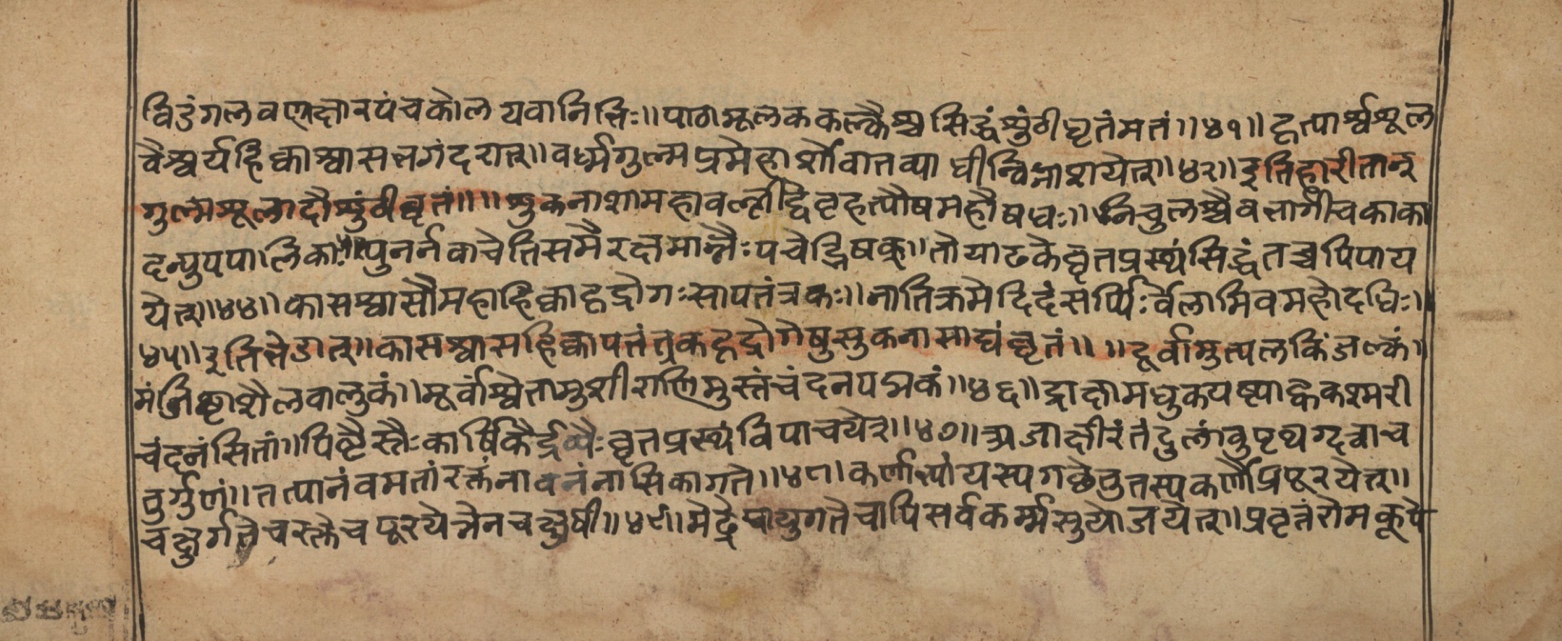 विडंगलवणक्षारपंचकोलयवानिभिः॥पाठामूलककल्कैश्चसिद्धंशुंठीघृतंमतं॥४१॥हृत्पार्श्वशूल
वैश्वर्यहिक्काश्वासभगंदरान्॥वर्ध्मगुल्मप्रमेहार्शोवातव्याधीन्विनाशयेत्॥४२॥इतिहारीतात्
गुल्मशूलादौशुंठीघृतं॥॥शुकनाशामहावल्लीद्विवृहत्पौषमहौषधः॥निचुलश्चैवभार्गीचकाका
दन्युपपालिका॥पुनर्नवाचेतिसमैरक्षमात्रैःपचेद्भिषक्॥तोयाढकेघृतप्रस्थंसिद्धंतच्चपिपाय
येत्॥४४॥कासश्वासौमहाहिक्काहृद्रोगःसापतंत्रकः॥नातिक्रमेदिदंसर्प्पिःर्वेलामिवमहोदधिः॥
४५॥इतिभेडात्॥कासश्वासहिक्कापतंत्रकहृद्रोगेषुसुकनासाद्यंघृतं॥॥दूर्वामुत्पलकिंजल्कं॥
मंजिष्ठाशैलवालुकं॥मूर्वाश्वेतामुशीराणिमुस्तंचंदनपद्मकं॥४६॥द्राक्षामधुकयष्ट्याह्वेकश्मरी
चंदनंसितां॥पिष्टैस्तैःकार्षिकैर्द्रव्यैःघृतप्रस्थंविपाचयेत्॥४७॥अजाक्षीरंतंदुलांवुपृथग्दत्वाच
तुर्गुणं॥तत्पानंवमतांरक्तंनावनंनासिकागते॥४८॥कर्णाभ्यांयस्यगछेत्तुतस्यकर्णौप्रपूरयेत्॥
चक्षुर्गतेचरक्तेचपूरयेत्तेनचक्षुषी॥४९॥मेढ्रेपायुगतेचापिसर्वकर्म्मसुयोजयेत्॥प्रवृत्तंरोमकूपे